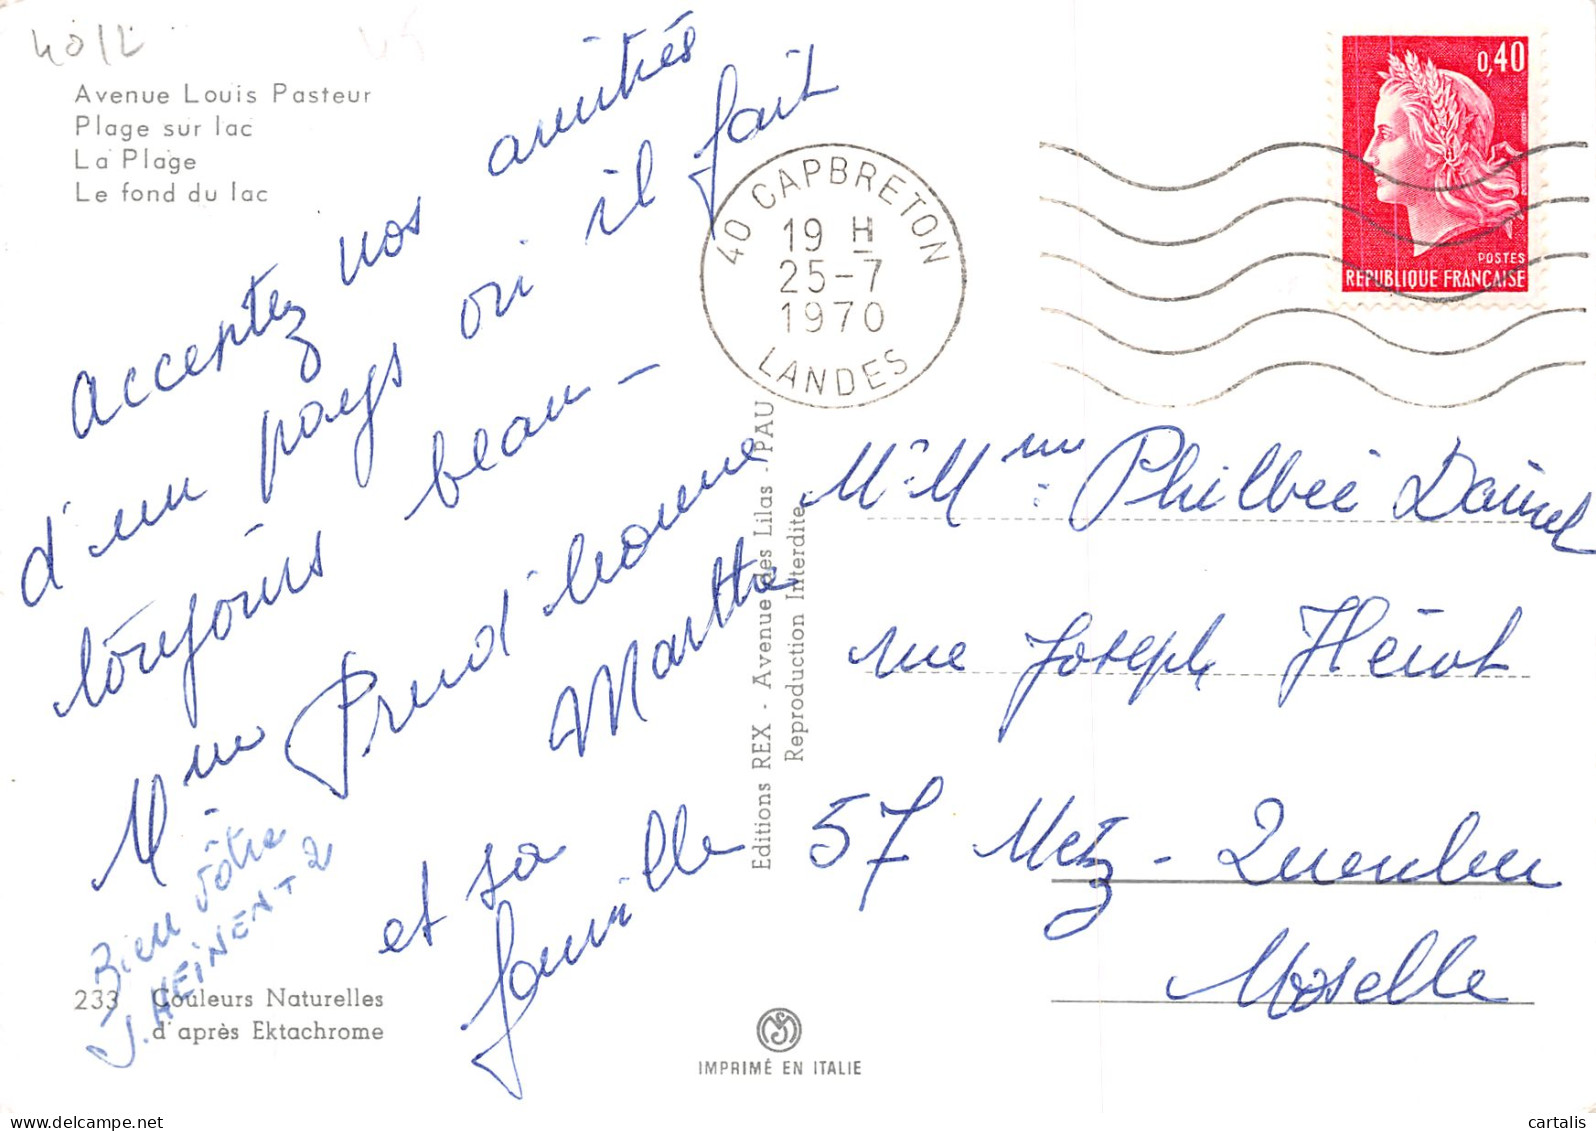 40/2
Avenue Louis Pasteur
Plage sur lac
La Plage
Le fond du lac
Acceptez nos amitiés
d'un pays où il fait
toujours beau -
Mme Prud'homme
Marthe
et sa
famille
Bien vôtre
J. HEINENT2
233 Couleurs Naturelles
d'après Ektachrome
Editions REX - Avenue des Lilas - PAU
Reproduction Interdite
IMPRIMÉ EN ITALIE
40 CAPBRETON
19 H
25-7
1970
LANDES
0,40
POSTES
REPUBLIQUE FRANÇAISE
Mr Mme Philbée Daniel
rue Joseph
57 Metz - Queuleu
Moselle
cartalis